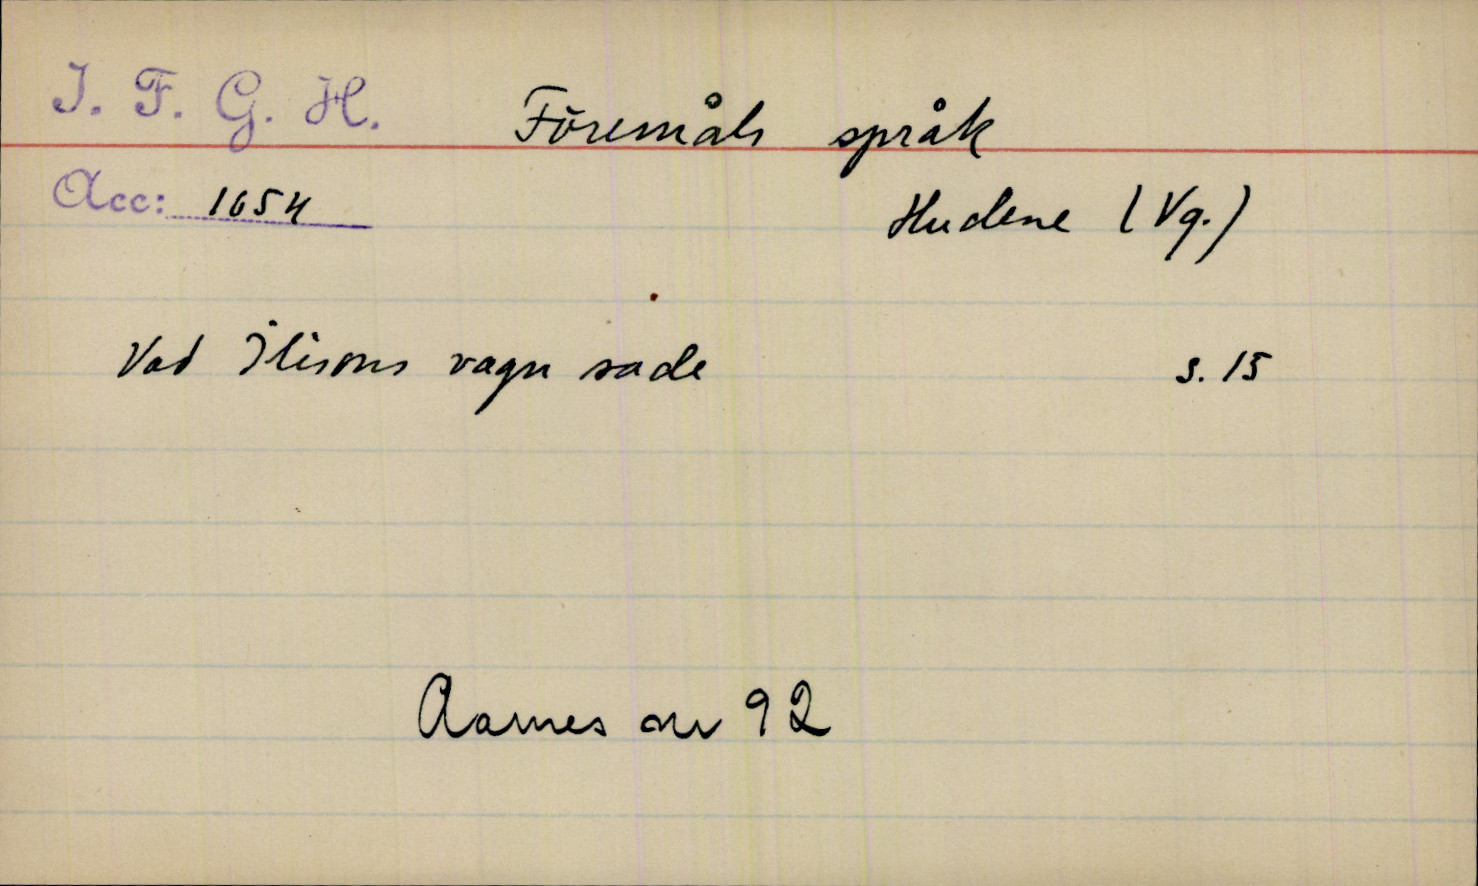 I. F. G. H.
Föremåls språk
Acc: 1654
Hudene (Vg.)
Vad Ilisons vagn sade s. 15
Aarnes nr 92